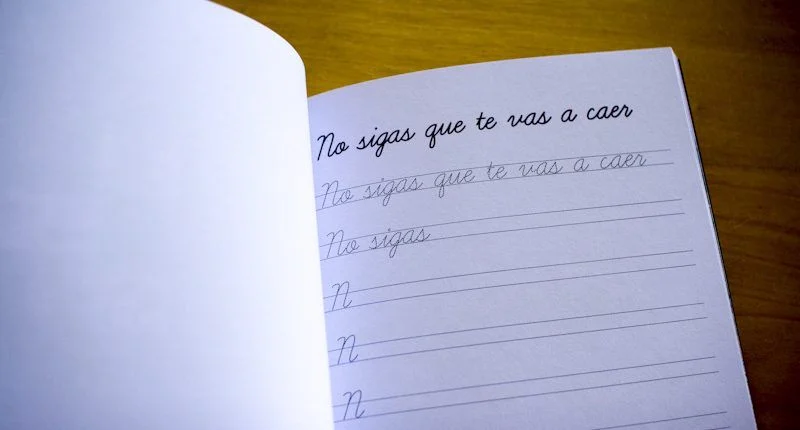 No sigas que te vas a caer
No sigas que te vas a caer
No sigas
N
N
N